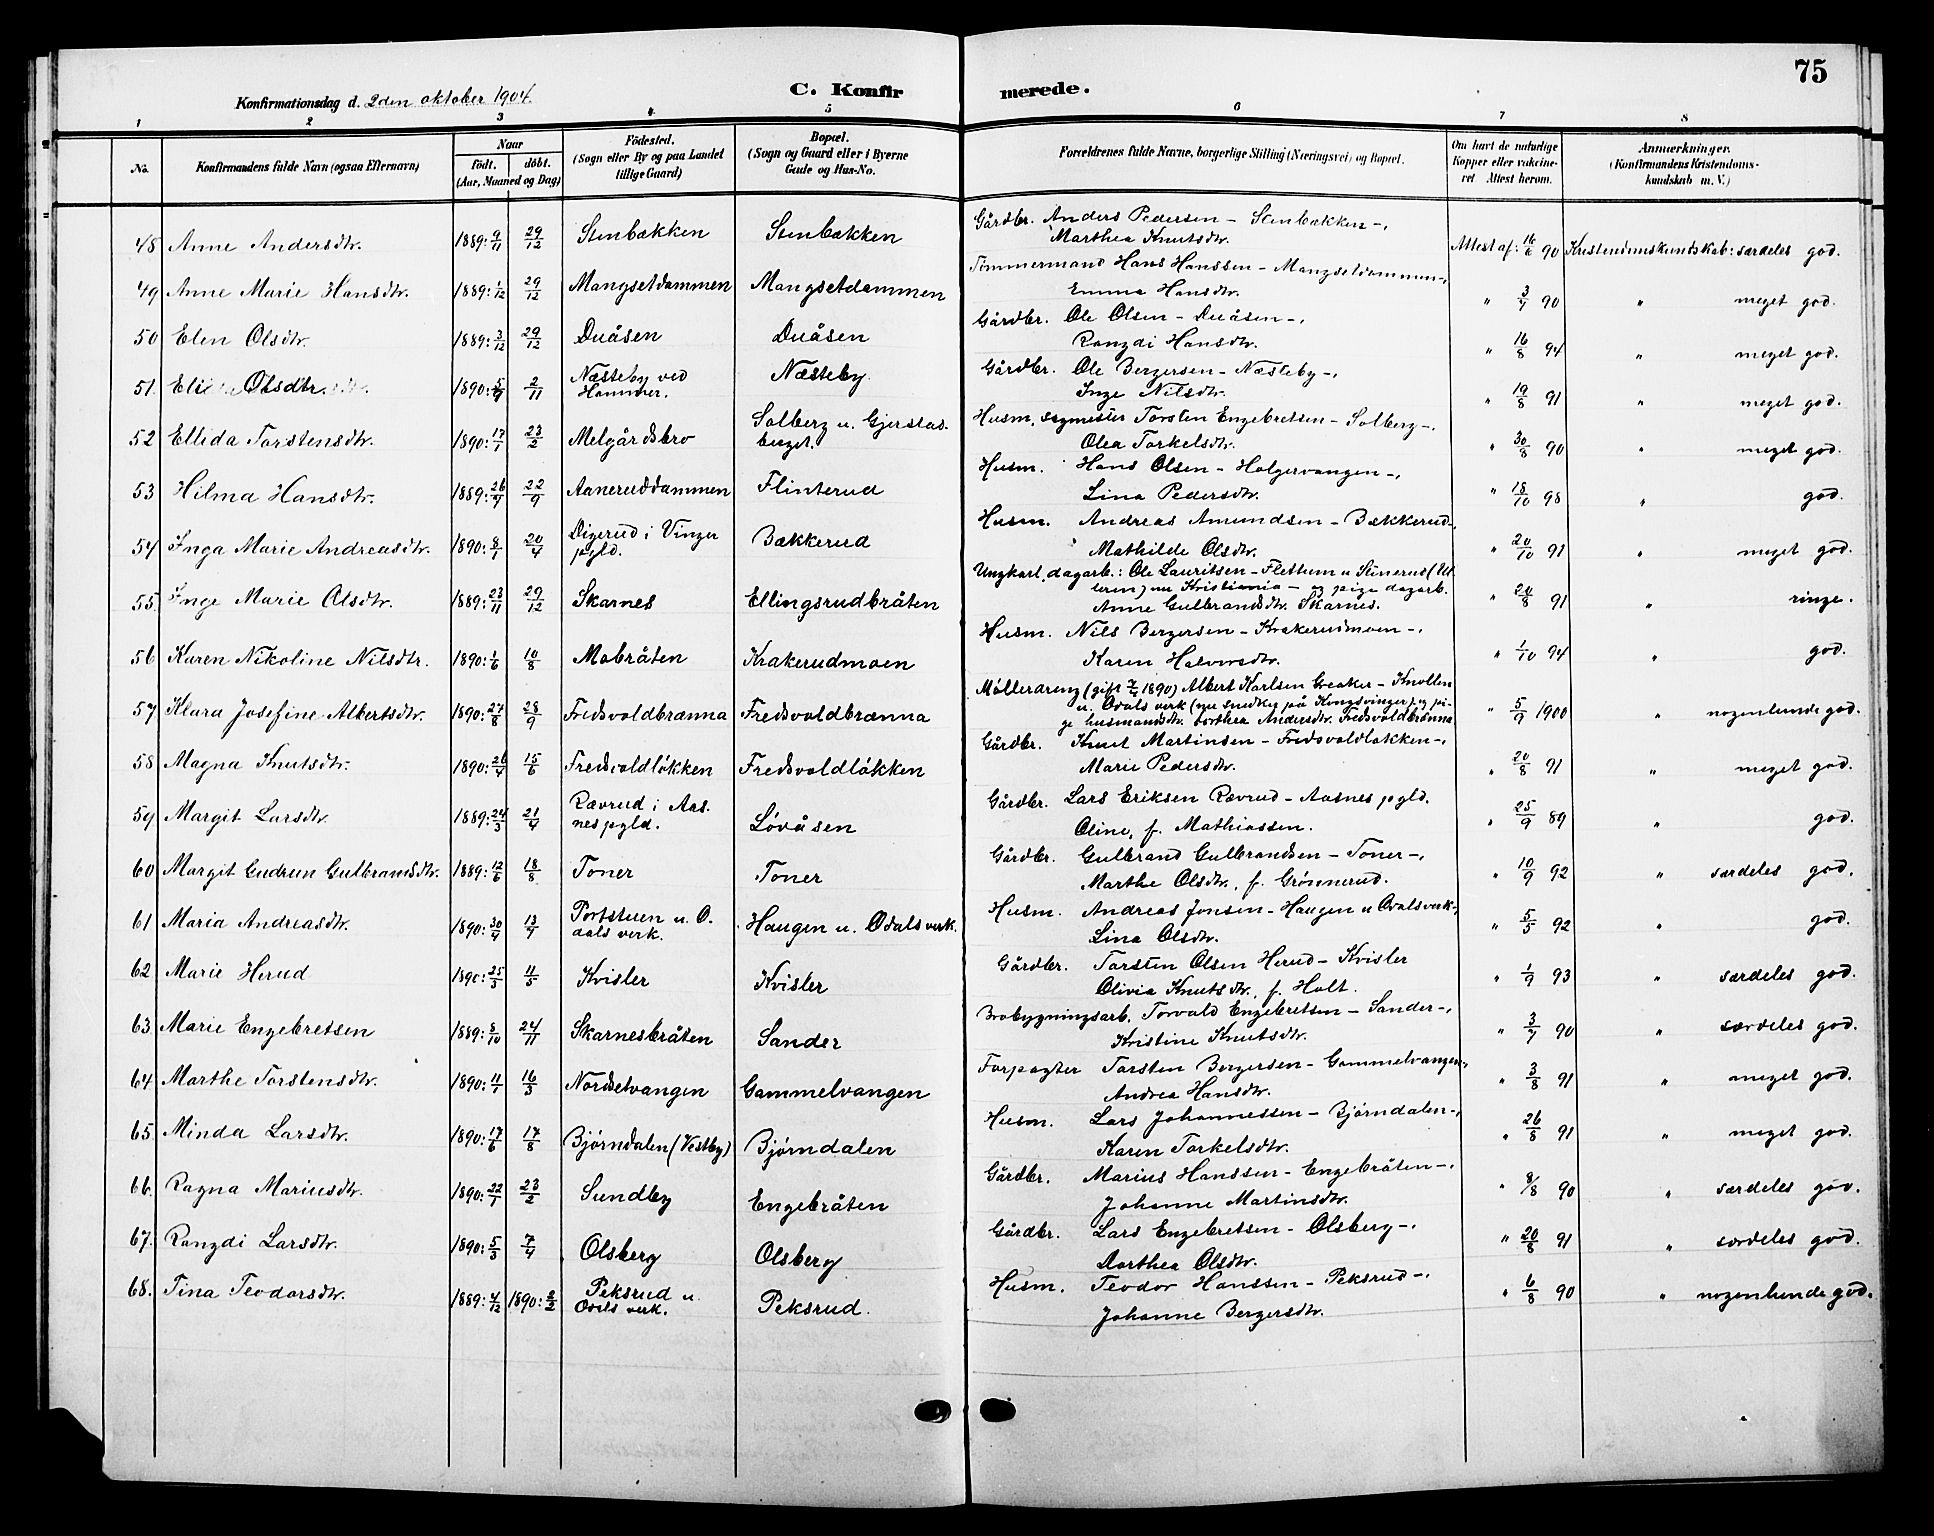 75
Konfirmationsdag d. 2den oktober 1904.
C. Konfir merede.
1 2 3 4 5 6 7 8
No. Konfirmandens fulde Navn (ogsaa Efternavn) Naar født. døbt. (Aar, Maaned og Dag) Födested. (Sogn eller By og paa Landet tillige Gaard) Bopæl. (Sogn og Gaard eller i Byerne Gade og Hus-No. Forældrenes fulde Navne, borgerlige Stilling (Næringsvei) og Bopæl. Om havt de naturlige Kopper eller vaccineret Attest herom. Anmærkninger. (Konfirmandens Kristendomskundskab m. V.)
48 Anne Andersdtr. 1889: 9/11 29/12 Stenbækken Stenbækken Gårdbr. Anders Pedersen - Stenbækken -,
Marthea Knutsdtr. Attest af: 16/6 90 Kristendomskundskab: særdeles god.
49 Anne Marie Hansdtr. 1889: 1/12 29/12 Mangsetdammen Mangsetdammen Tømmermand Hans Hanssen - Mangsetdammen -,
Emma Hansdtr. " 3/7 90 " meget god.
50 Elen Olsdtr. 1889: 3/12 29/12 Duåsen Duåsen Gårdbr. Ole Olsen - Duåsen -,
Rangdi Hansdtr. " 16/8 94 " meget god.
51. Olsdtr. 1890: 2/11 Næsteby ved Hammer. Næsteby. Gårdbr. Ole Bergersen - Næsteby -,
Inge Nilsdtr. " 19/8 91 " meget god.
52 Ellida Torstensdtr. 1890: 17/1 23/2 Melgårdsbro Solberg u. Gjerstadberget. Husm. sagmester Torsten Engebretsen - Solberg -,
Olea Torkelsdtr. " 30/8 90 " meget god.
53 Hilma Hansdtr. 1889: 26/7 22/9 Aaneruddammen Flinterud Husm. Hans Olsen - Holgervangen -,
Lina Pedersdtr. " 18/10 98 " god.
54 Inga Marie Andreasdtr. 1890: 8/1 20/4 Digerud i Vinger pgld. Bækkerud Husm. Andreas Amundsen - Bækkerud -,
Mathilde Olsdtr. " 20/10 91 " meget god.
55. Inge Marie Olsdtr. 1889: 23/11 29/12 Skarnes Ellingsrudbråten Ungkarl, dagarb.: Ole Lauritsen - Flettum u Stenerud
nu Kristiania - og pige dagarb.
Anne Gulbrandsdtr. Skarnes. " 20/8 91 " ringe.
56 Karen Nikoline Nilsdtr. 1890: 1/6 10/8 Mobråten Krakerudmoen Husm. Nils Bergersen - Krakerudmoen -,
Karen Halvorsdtr. " 1/10 94 " god.
57 Klara Josefine Albertsdtr. 1890: 27/8 28/9 Fredsvoldbrænna Fredsvoldbrænna Møllerdreng (gift 1890) Albert Karlsen Greaker - Knollen
u. Odals verk (nu snedker på Kongsvinger) og pige
husmandsdtr. Dorthea Andersdtr. Fredsvoldbrænna " 5/9 1900 " nogenlunde god.
58 Magna Knutsdtr. 1890: 26/4 15/6 Fredsvoldløkken Fredsvoldløkken Gårdbr. Knut Martinsen - Fredsvoldløkken -,
Marie Pedersdtr. " 20/8 91 " meget god.
59 Margit Larsdtr. 1889: 24/3 21/4 Rævrud i Aasnes pgld. Løvåsen Gårdbr. Lars Eriksen Rævrud - Aasnes pgld.
Oline, f. Mathiassen. " 25/9 89 " god.
60 Margit Gudrun Gulbrandsdtr. 1889: 12/6 18/8 Toner Toner Gårdbr. Gulbrand Gulbrandsen - Toner -,
Marthe Olsdtr., f. Grønnerud. " 10/9 92 " særdeles god.
61 Maria Andreasdtr. 1890: 30/4 13/7 Portstuen u. Odals verk. Haugen u. Odals verk. Husm. Andreas Jonsen - Haugen u Odalsverk -,
Lina Olsdtr. " 5/5 92 " god.
62 Marie Herud 1890: 25/3 11/5 Kvisler Kvisler Gårdbr. Torsten Olsen Herud - Kvisler
Olivia Knutsdtr., f. Holt. " 1/9 93 " særdeles god.
63. Marie Engebretsen 1889: 8/10 24/11 Skarnesbråten Sander Brobygningsarb. Torvald Engebretsen - Sander -,
Kristine Knutsdtr. " 3/7 90 " særdeles god.
64. Marthe Torstensdtr. 1890: 11/1 16/3 Nordsetvangen Gammelvangen Forpagter Torsten Bergersen - Gammelvangen -,
Andrea Hansdtr. " 3/8 91 " meget god.
65. Minda Larsdtr. 1890: 17/6 17/8 Bjørndalen (Vestby) Bjørndalen Husm. Lars Johannessen - Bjørndalen -,
Karen Torkelsdtr. " 26/8 91 " meget god.
66. Ragna Mariusdtr. 1890: 22/1 23/2 Sundby Engebråten Gårdbr. Marius Hanssen - Engebråten -,
Johanne Martinsdtr. " 8/8 90 " særdeles god.
67. Rangdi Larsdtr. 1890: 5/3 7/4 Olsberg Olsberg Gårdbr. Lars Engebretsen - Olsberg -,
Dorthea Olsdtr. " 20/8 91 " særdeles god.
68. Tina Teodorsdtr. 1889: 4/12 1890: 2/2 Peksrud u. Odals verk. Peksrud. Husm. Teodor Hanssen - Peksrud -,
Johanne Bergersdtr. " 6/8 90 " nogenlunde god.